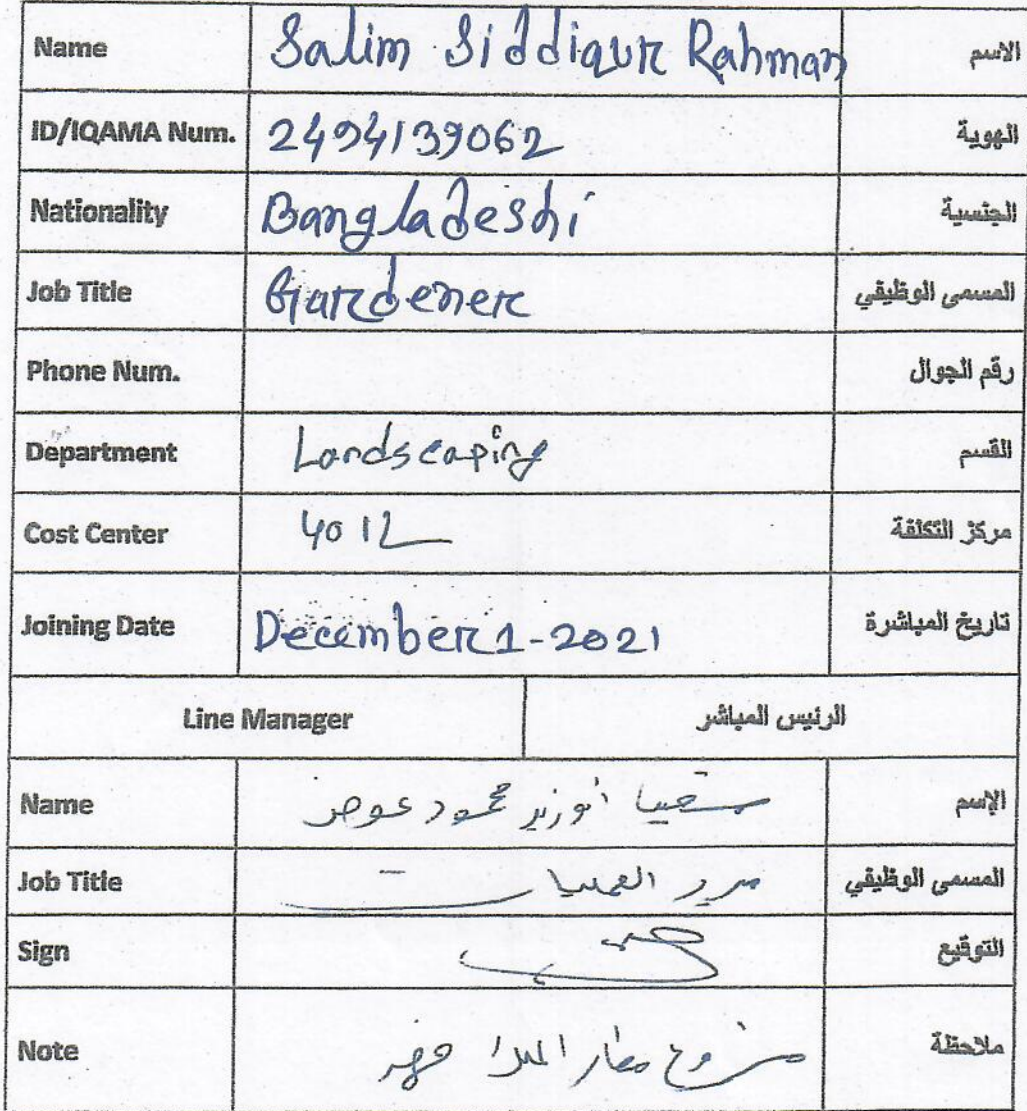 Name Salim Siddiqur Rahman الاسم
ID/IQAMA Num. 2494139062 الهوية
Nationality Bangladeshi الجنسية
Job Title Gardener المسمى الوظيفي
Phone Num. رقم الجوال
Department Landscaping القسم
Cost Center 4012 مركز التكلفة
Joining Date December 1-2021 تاريخ المباشرة
Line Manager الرئيس المباشر
Name أبوزيد محمود عوض الإسم
Job Title مدير العمليات المسمى الوظيفي
Sign التوقيع
Note مشروع مطار الملك فهد ملاحظة